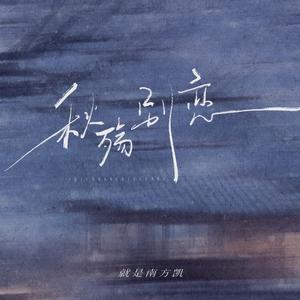 秋殇别恋
就是南方凯